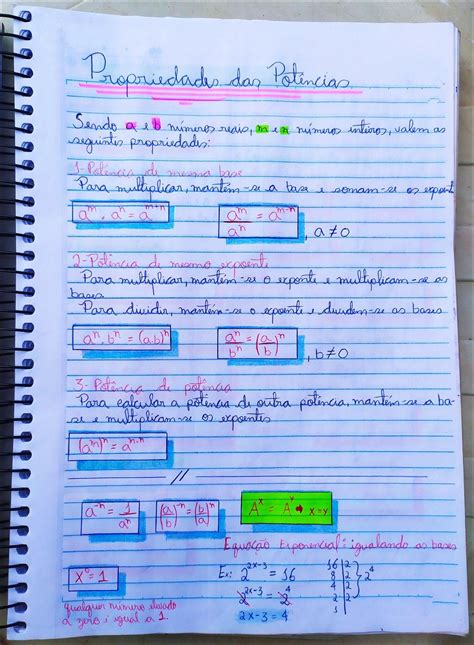 Propriedades das Potências
Sendo a e b números reais, m e n números inteiros, valem as
seguintes propriedades:
1-Potência de mesma base
Para multiplicar, mantém-se a base e somam-se os expoent
a^m . a^n = a^(m+n)
a^m / a^n = a^(m-n) , a≠0
2-Potência de mesmo expoente
Para multiplicar, mantém-se o expoente e multiplicam-se as
bases
Para dividir, mantém-se o expoente e dividem-se as bases
a^n . b^n = (a.b)^n
a^n / b^n = (a/b)^n , b≠0
3-Potência de potência
Para calcular a potência de outra potência, mantém-se a ba-
se e multiplicam-se os expoentes
a^-n = 1/a^n
A^x = A^y → x=y
Equação Exponencial: igualando as bases
x^0 = 1
Ex: 2^(2x-3) = 16
2^(2x-3) = 2^4
2x-3 = 4
16 | 2
8 | 2
4 | 2
2 | 2
1
2^4
qualquer número elevado
a zero é igual a 1.